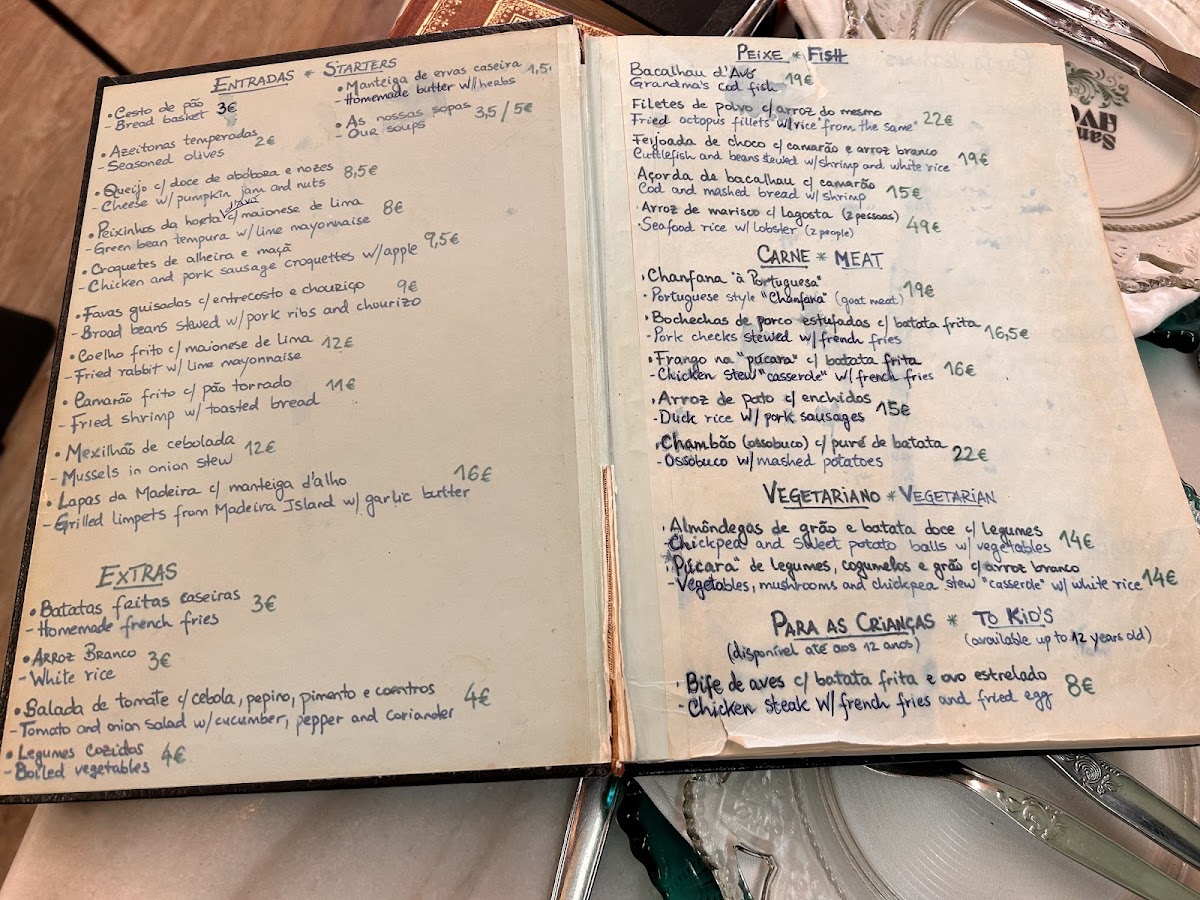 ENTRADAS * STARTERS
• Cesto de pão
- Bread basket 3€
• Manteiga de ervas caseira
- Homemade butter w/herbs 1,5
• Azeitonas temperadas
- Seasoned olives 2€
• As nossas sopas
- Our soups 3,5 / 5€
• Queijo c/ doce de abóbora e nozes
- Cheese w/ pumpkin jam and nuts 8,5€
• Peixinhos da horta d'avó c/ maionese de lima
- Green bean tempura w/ lime mayonnaise 8€
• Croquetes de alheira e maçã
- Chicken and pork sausage croquettes w/apple 9,5€
• Favas guisadas c/ entrecosto e chouriço
- Broad beans stewed w/ pork ribs and chourizo 9€
• Coelho frito c/ maionese de lima
- Fried rabbit w/ lime mayonnaise 12€
• Camarão frito c/ pão torrado
- Fried shrimp w/ toasted bread 11€
• Mexilhão de cebolada
- Mussels in onion stew 12€
• Lapas da Madeira c/ manteiga d'alho
- Grilled limpets from Madeira Island w/ garlic butter 16€
EXTRAS
• Batatas fritas caseiras
- Homemade french fries 3€
• Arroz Branco
- White rice 3€
• Salada de tomate c/ cebola, pepino, pimento e coentros
- Tomato and onion salad w/ cucumber, pepper and coriander 4€
• Legumes cozidos
- Boiled vegetables 4€
PEIXE * FISH
Bacalhau d'Avó
Grandma's cod fish 19€
Filetes de polvo c/ arroz do mesmo
Fried octopus fillets w/ rice "from the same" 22€
Feijoada de choco c/ camarão e arroz branco
Cuttlefish and beans stewed w/ shrimp and white rice 19€
Açorda de bacalhau c/ camarão
Cod and mashed bread w/ shrimp 15€
• Arroz de marisco c/ lagosta (2 pessoas)
• Seafood rice w/ lobster (2 people) 49€
CARNE * MEAT
• Chanfana "à Portuguesa"
• Portuguese style "Chanfana" (goat meat) 19€
• Bochechas de porco estufadas c/ batata frita
- Pork checks stewed w/ french fries 16,5€
• Frango na "púcara" c/ batata frita
- Chicken stew "casserole" w/ french fries 16€
• Arroz de pato c/ enchidos
- Duck rice w/ pork sausages 15€
• Chambão (ossobuco) c/ puré de batata
- Ossobuco w/ mashed potatoes 22€
VEGETARIANO * VEGETARIAN
• Almôndegas de grão e batata doce c/ legumes
- Chickpea and sweet potato balls w/ vegetables 14€
• "Púcara" de legumes, cogumelos e grão c/ arroz branco
- Vegetables, mushrooms and chickpea stew "casserole" w/ white rice 14€
PARA AS CRIANÇAS * TO KID'S
(disponível até aos 12 anos) (available up to 12 years old)
• Bife de aves c/ batata frita e ovo estrelado
- Chicken steak w/ french fries and fried egg 8€